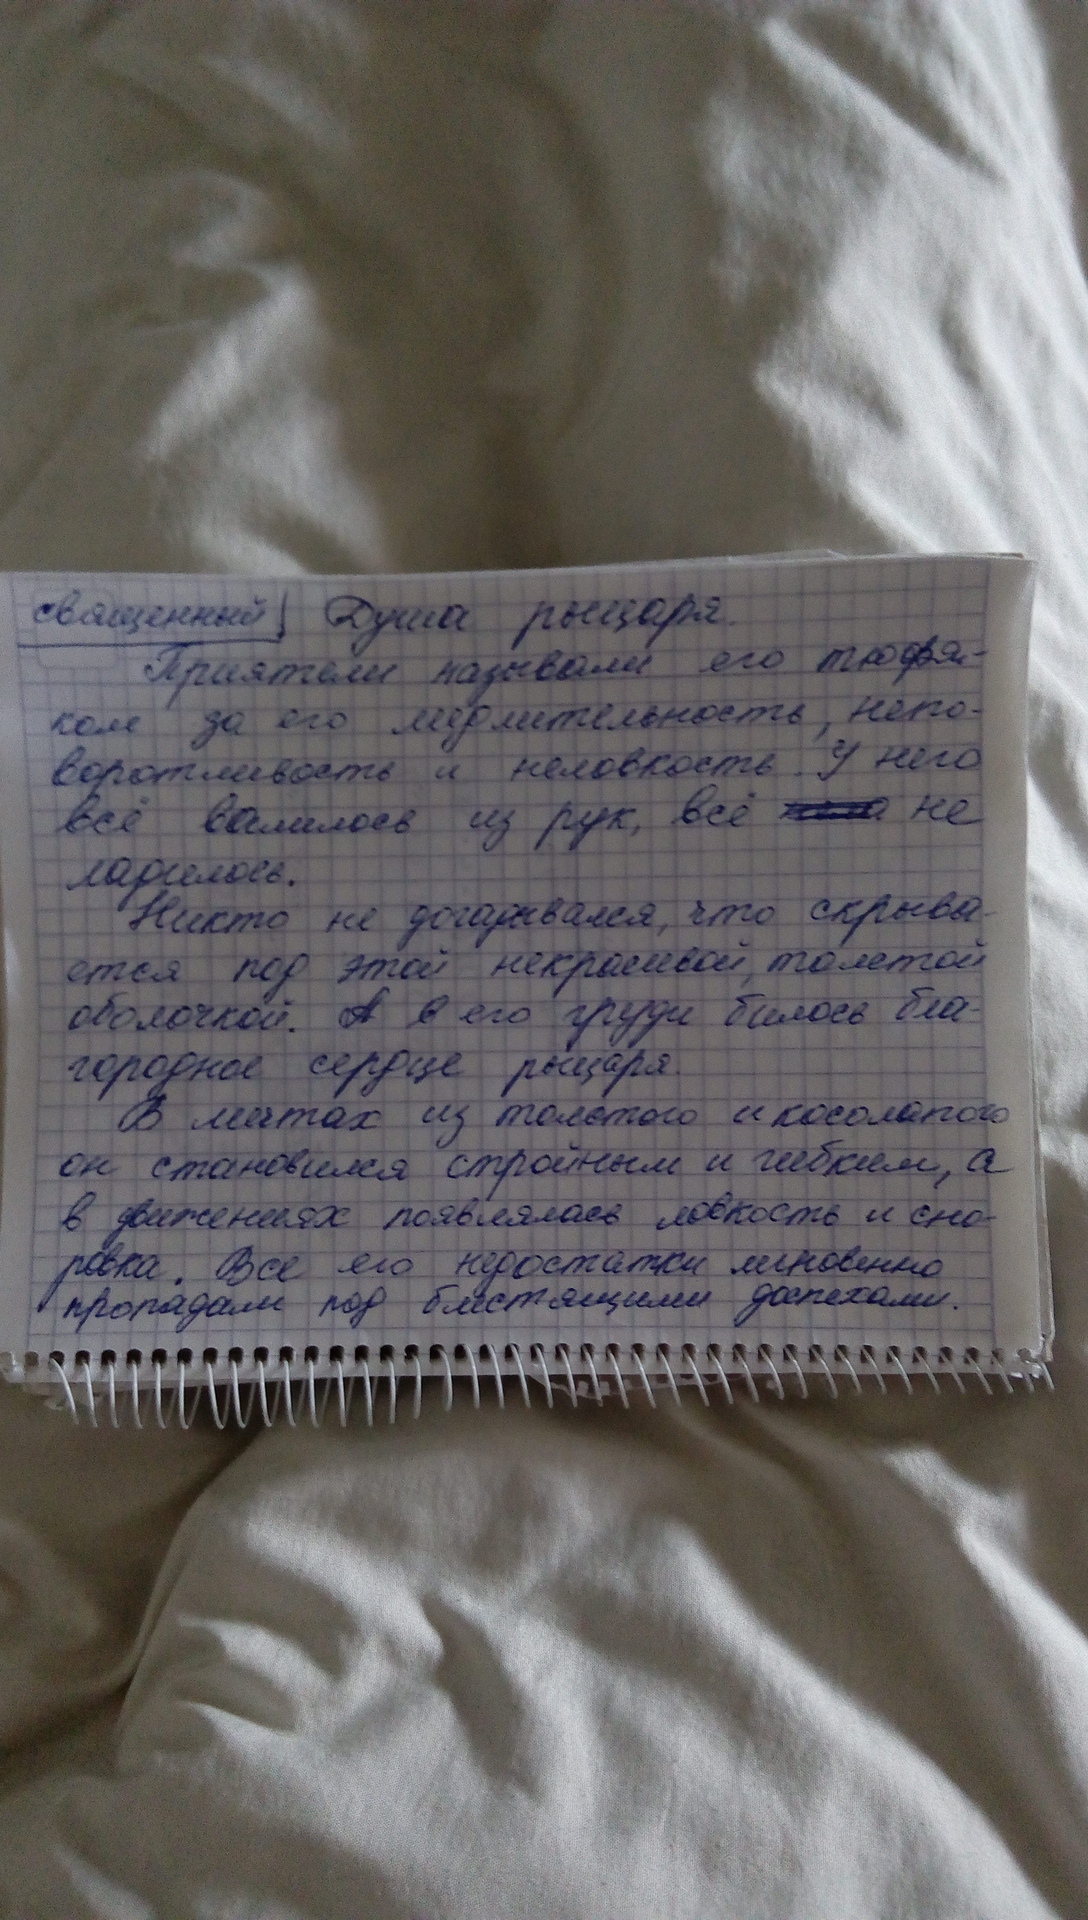 священный Душа рыцаря.
Приятели называли его тюфя-
ком за его медлительность, непо-
воротливость и неловкость. У него
всё валилось из рук, всё не
ладилось.
Никто не догадывался, что скрыва-
ется под этой некрасивой, толстой
оболочкой. А в его груди билось бла-
городное сердце рыцаря.
В мечтах из толстого и косолапого
он становился стройным и гибким, а
в движениях появлялась ловкость и сно-
ровка. Все его недостатки мгновенно
пропадали под блестящими доспехами.